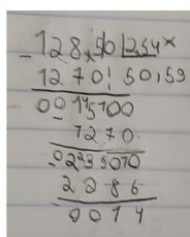 -128,50 |2,54 x
1270 50,59
001500
- 1270
-0230
2286
0014